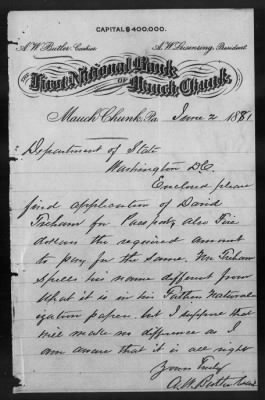 CAPITAL $400,000.
A.W. Butler. Cashier A.W. Leisenring. President
THE First National Bank
OF Mauch Chunk.
Mauch Chunk, Pa. June 2 1881
Department of State
Washington D.C.
Enclosed please
find application of David
for Passport, also Five
dollars the required amount
to pay for the same. Mr
spells his name different from
what it is in his Fathers Natural
ization papers. but I suppose that
will make no difference as I
am aware that it is all right
Yours Truly
A.W. Butler Cash